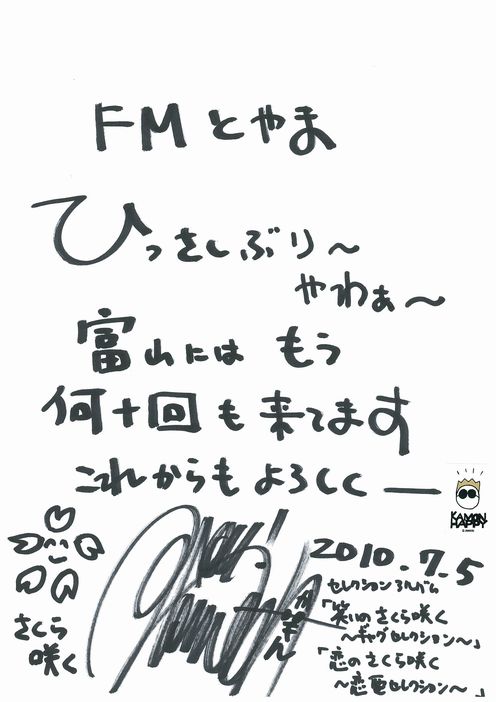 FMとやま
ひっさしぶり〜
やわぁ〜
富山には もう
何十回も来てます
これからもよろしくー
KAMON
さくら
咲く
かもん
2010.7.5
セレクションアルバム
「笑いのさくら咲く
〜ギャグセレクション〜」
「恋のさくら咲く
〜恋唄セレクション〜」